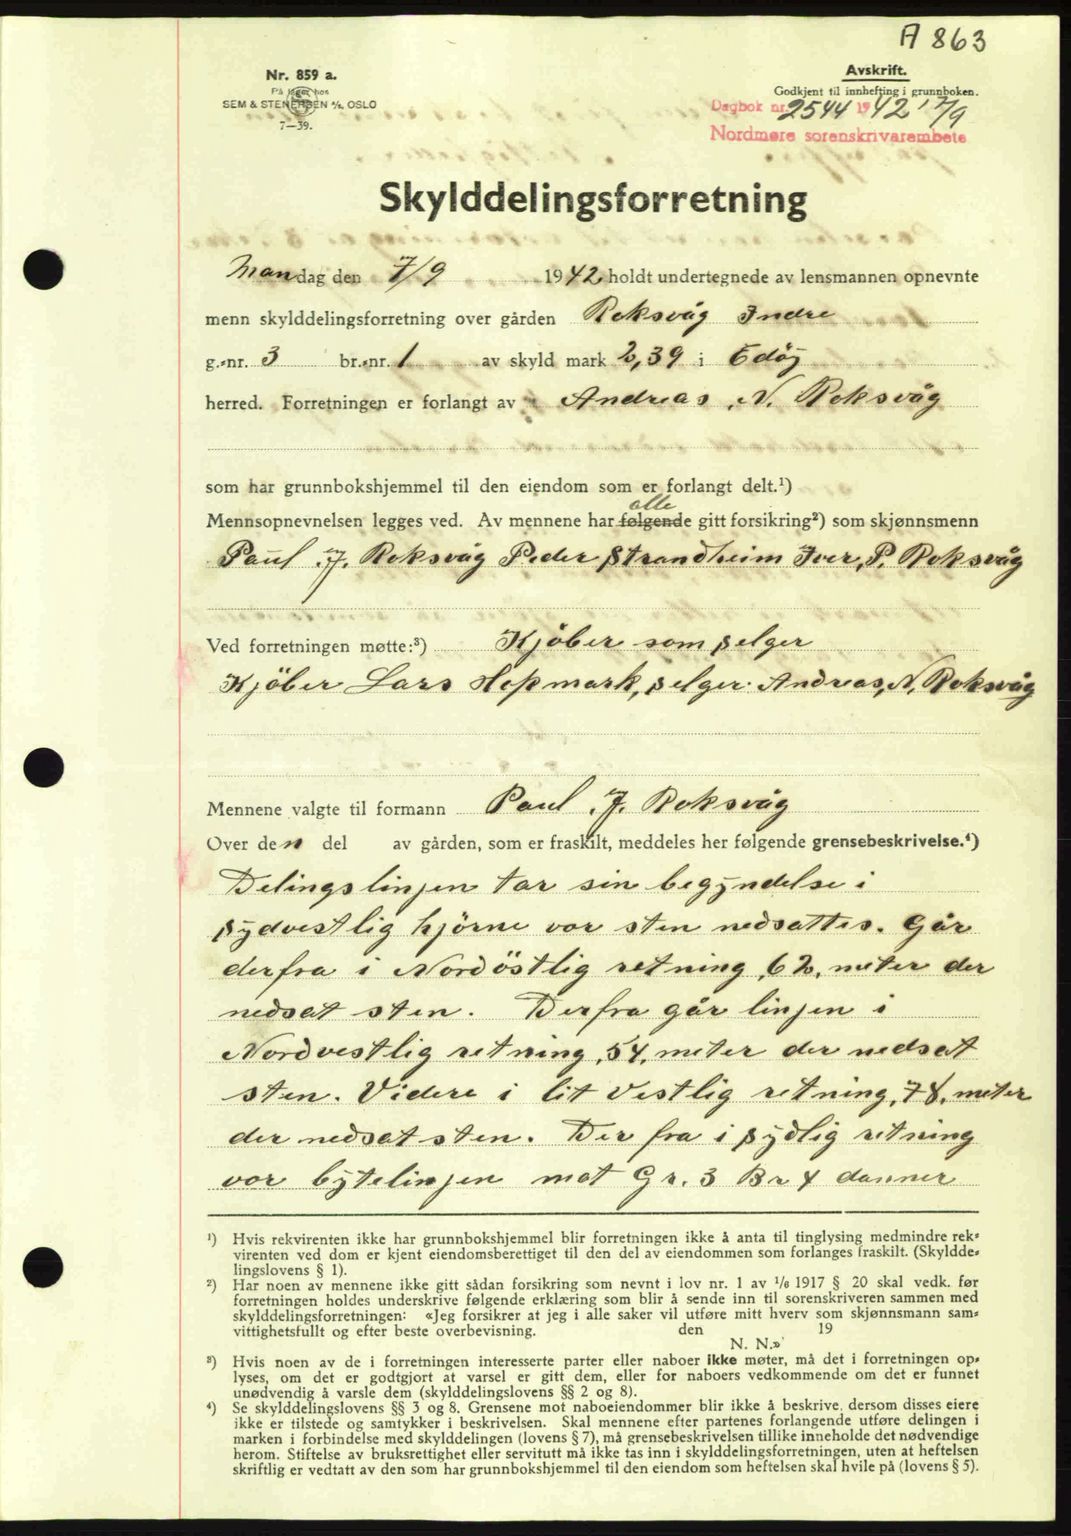 A 863
Nr. 859 a.
På lager hos
SEM & STENERSEN A/S, OSLO
7—39.
Avskrift.
Godkjent til innhefting i grunnboken.
Dagbok nr. 2544 1942 17/9
Nordmøre sorenskriverembete
Skylddelingsforretning
Mandag den 7/9 1942 holdt undertegnede av lensmannen opnevnte
menn skylddelingsforretning over gården Roksvåg Indre
g.-nr. 3 br.-nr. 1 av skyld mark 2,39 i Edöy
herred. Forretningen er forlangt av Andreas N. Roksvåg
som har grunnbokshjemmel til den eiendom som er forlangt delt.¹)
alle
Mennsopnevnelsen legges ved. Av mennene har følgende gitt forsikring²) som skjønnsmenn
Paul J. Roksvåg Peder Strandheim Iver P. Roksvåg
Ved forretningen møtte:³) Kjöber som selger
Kjöber Lars Hopmark, selger Andreas N. Roksvåg
Mennene valgte til formann Paul J. Roksvåg
Over den del av gården, som er fraskilt, meddeles her følgende grensebeskrivelse.⁴)
Delingslinjen tar sin begyndelse i
sydvestlig hjörne vor sten nedsattes. Går
derfra i Nordöstlig retning, 62, meter der
nedsat sten. Derfra går linjen i
Nordvestlig retning, 54, meter der nedsat
sten. Videre i lit Vestlig retning, 78, meter
der nedsat sten. Der fra i sydlig retning
vor bytelinjen mot Gr. 3 Br 4 danner
¹) Hvis rekvirenten ikke har grunnbokshjemmel blir forretningen ikke å anta til tinglysing medmindre rek-
virenten ved dom er kjent eiendomsberettiget til den del av eiendommen som forlanges fraskilt. (Skyldde-
lingslovens § 1).
²) Har noen av mennene ikke gitt sådan forsikring som nevnt i lov nr. 1 av 1/6 1917 § 20 skal vedk. før
forretningen holdes underskrive følgende erklæring som blir å sende inn til sorenskriveren sammen med
skylddelingsforretningen: «Jeg forsikrer at jeg i alle saker vil utføre mitt hverv som skjønnsmann sam-
vittighetsfullt og efter beste overbevisning. den 19
N. N.»
³) Hvis noen av de i forretningen interesserte parter eller naboer ikke møter, må det i forretningen op-
lyses, om det er godtgjort at varsel er gitt dem, eller for naboers vedkommende om det er funnet
unødvendig å varsle dem (skylddelingslovens §§ 2 og 8).
⁴) Se skylddelingslovens §§ 3 og 8. Grensene mot naboeiendommer blir ikke å beskrive, dersom disses eiere
ikke er tilstede og samtykker i beskrivelsen. Skal mennene efter partenes forlangende utføre delingen i
marken i forbindelse med skylddelingen (lovens § 7), må grensebeskrivelsen tillike inneholde det nødvendige
herom. Stiftelse av bruksrettighet eller servitutt må ikke tas inn i skylddelingsforretningen, uten at heftelsen
skriftlig er vedtatt av den som har grunnbokshjemmel til den eiendom som heftelsen skal hvile på (lovens § 5).